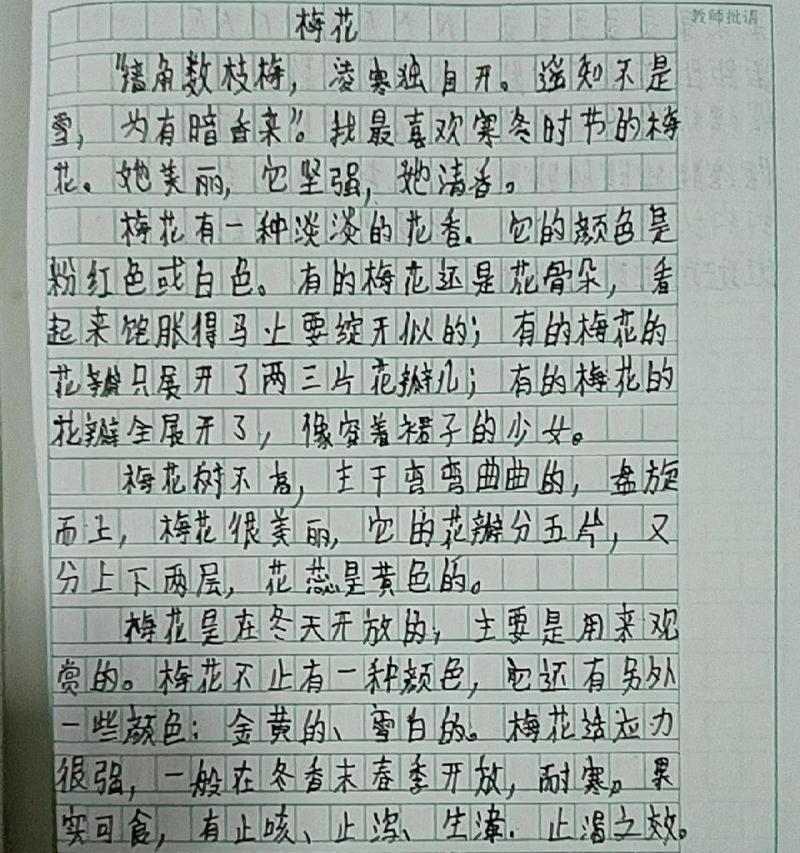 教师批语
梅花
“墙角数枝梅，凌寒独自开。遥知不是
雪，为有暗香来”。我最喜欢寒冬时节的梅
花。她美丽，它坚强，她清香。
梅花有一种淡淡的花香。它的颜色是
粉红色或白色。有的梅花还是花骨朵，看
起来饱胀得马上要绽开似的；有的梅花的
花瓣只展开了两三片花瓣儿；有的梅花的
花瓣全展开了，像穿着裙子的少女。
梅花树不高，主干弯弯曲曲的，盘旋
而上，梅花很美丽，它的花瓣分五片，又
分上下两层，花蕊是黄色的。
梅花是在冬天开放的，主要是用来观
赏的。梅花不止有一种颜色，它还有另外
一些颜色：金黄的、雪白的。梅花适应力
很强，一般在冬香末春季开放，耐寒。果
实可食，有止咳、止泻、生津．止渴之效。